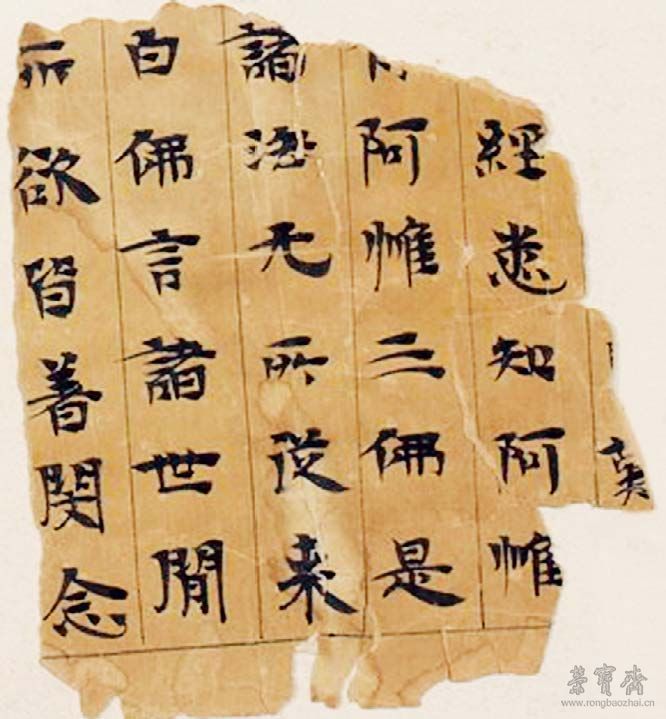 經悉知阿惟
阿惟三佛是
諸法无所從来
白佛言諸世間
所欲皆著閔念
榮寶齋
www.rongbaozhai.cn